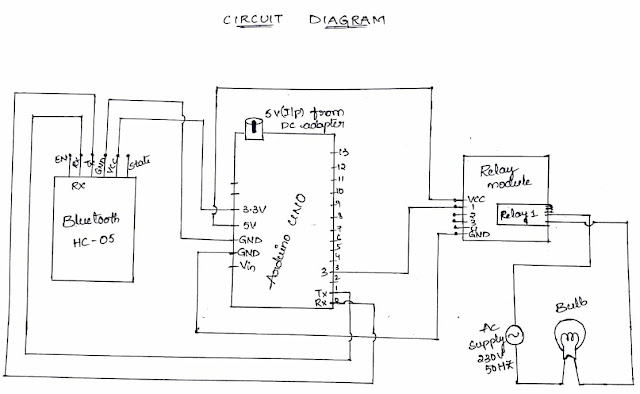 CIRCUIT DIAGRAM
5V(I/P) from
DC adapter
EN
RX
TX
GND
VCC
State
RX
Bluetooth
HC-05
Arduino UNO
3.3V
5V
GND
GND
Vin
13
12
11
10
9
8
7
6
5
4
3
3
2
Tx 1
Rx 0
Relay
module
VCC
1
2
3
4
GND
Relay 1
AC
Supply
230V
50HZ
Bulb